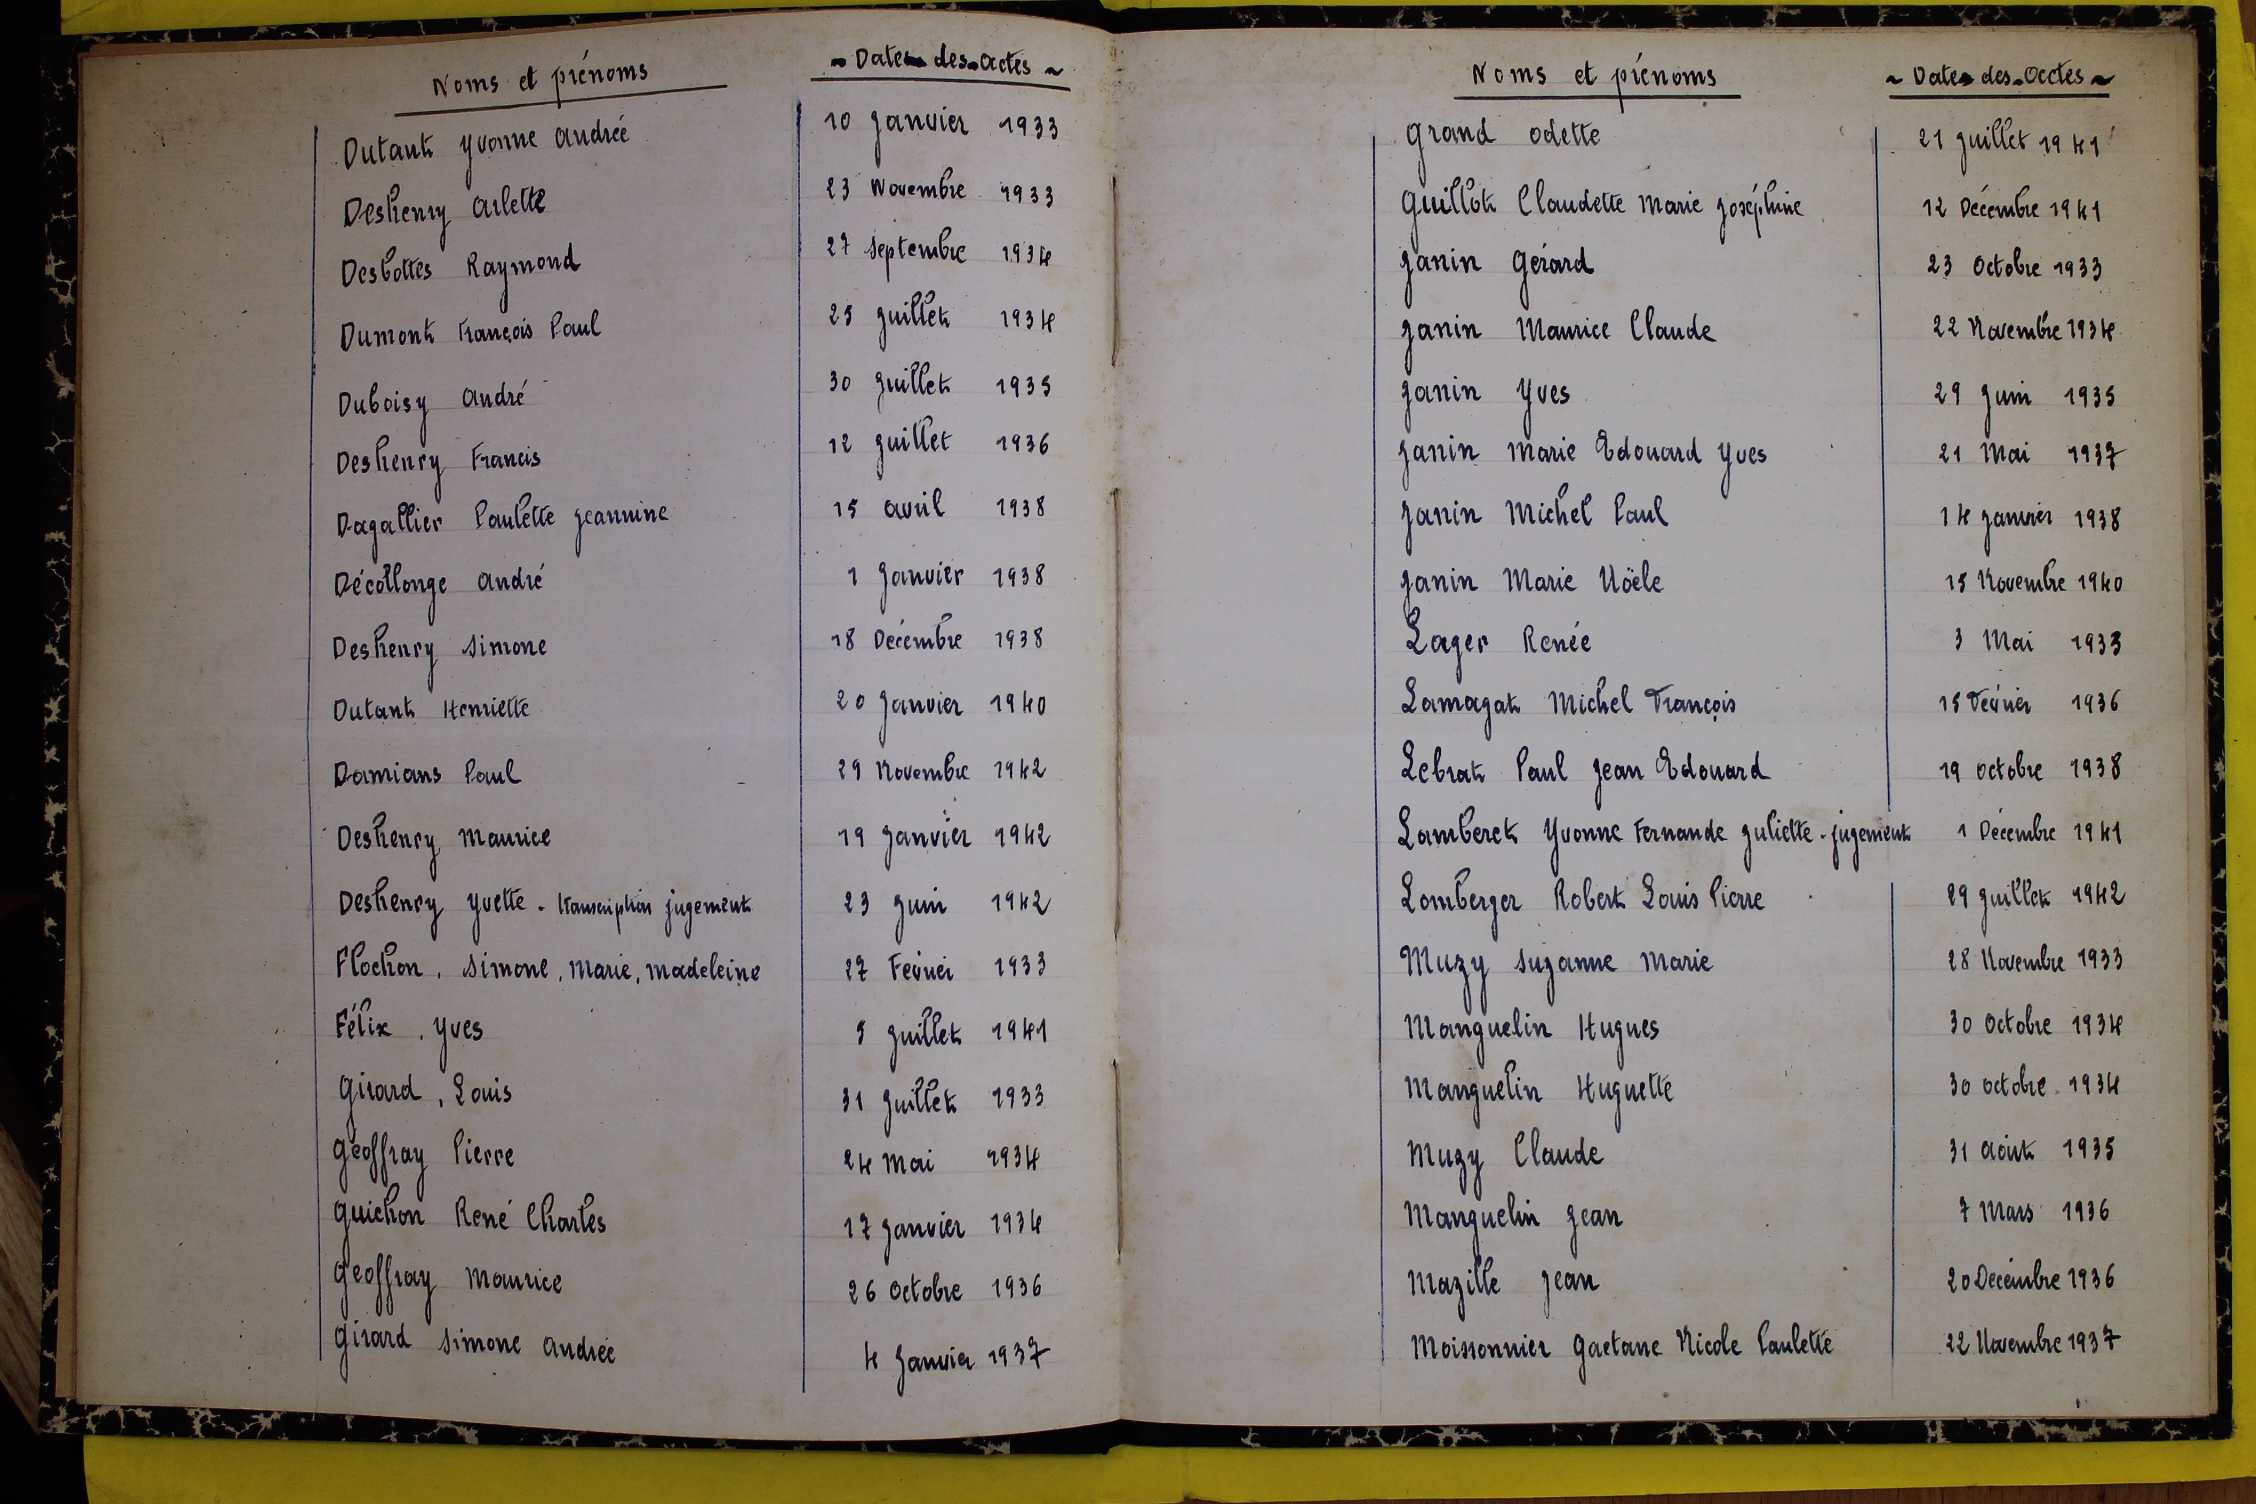 Noms et prénoms ~ Dates des Actes ~
Dutant Yvonne Andrée 10 Janvier 1933
Deshenry Arlette 23 Novembre 1933
Desbottes Raymond 27 Septembre 1934
Dumont François Paul 25 Juillet 1934
Duboisy André 30 Juillet 1935
Deshenry Francis 12 Juillet 1936
Dagallier Paulette Jeannine 15 Avril 1938
Décollonge André 1 Janvier 1938
Deshenry Simone 18 Décembre 1938
Dutant Henriette 20 Janvier 1940
Damians Paul 29 Novembre 1942
Deshenry Maurice 19 Janvier 1942
Deshenry Yvette - transcription jugement 23 Juin 1942
Flochon, Simone, Marie, Madeleine 27 Février 1933
Félix, Yves 5 Juillet 1941
Girard, Louis 31 Juillet 1933
Geoffray Pierre 24 Mai 1934
Guichon René Charles 17 Janvier 1934
Geoffray Maurice 26 Octobre 1936
Girard Simone Andrée 4 Janvier 1937
Noms et prénoms ~ Dates des Actes ~
Grand Odette 21 Juillet 1941
Guillot Claudette Marie Joséphine 12 Décembre 1941
Janin Gérard 23 Octobre 1933
Janin Maurice Claude 22 Novembre 1934
Janin Yves 29 Juin 1935
Janin Marie Edouard Yves 21 Mai 1937
Janin Michel Paul 14 Janvier 1938
Janin Marie Noële 15 Novembre 1940
Lager Renée 3 Mai 1933
Lamagat Michel François 15 Février 1936
Lebrat Paul Jean Edouard 19 Octobre 1938
Lamberet Yvonne Fernande Juliette - jugement 1 Décembre 1941
Lomberger Robert Louis Pierre 29 Juillet 1942
Muzy Suzanne Marie 28 Novembre 1933
Manguelin Hugues 30 Octobre 1934
Manguelin Huguette 30 Octobre 1934
Muzy Claude 31 Août 1935
Manguelin Jean 7 Mars 1936
Mazille Jean 20 Décembre 1936
Moissonnier Gaetane Nicole Paulette 22 Novembre 1937